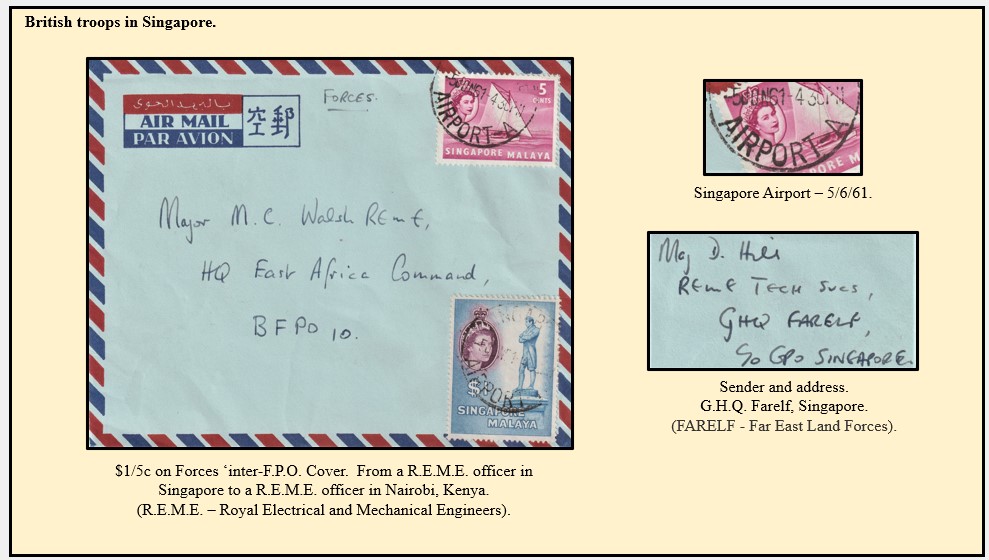 British troops in Singapore.
بالبريد الجوي
AIR MAIL
PAR AVION
空郵
FORCES.
5JUN61-430PM
AIRPORT-A
5
CENTS
SINGAPORE MALAYA
Major M. C. Walsh REME,
HQ East Africa Command,
BFPO 10.
AIRPORT
$1
SINGAPORE
MALAYA
$1/5c on Forces ‘inter-F.P.O. Cover. From a R.E.M.E. officer in
Singapore to a R.E.M.E. officer in Nairobi, Kenya.
(R.E.M.E. – Royal Electrical and Mechanical Engineers).
5JUN61-430PM
AIRPORT-A
PORE M
Singapore Airport – 5/6/61.
Maj D. Hill
REME TECH SVCS,
GHQ FARELF,
c/o GPO SINGAPORE.
Sender and address.
G.H.Q. Farelf, Singapore.
(FARELF - Far East Land Forces).